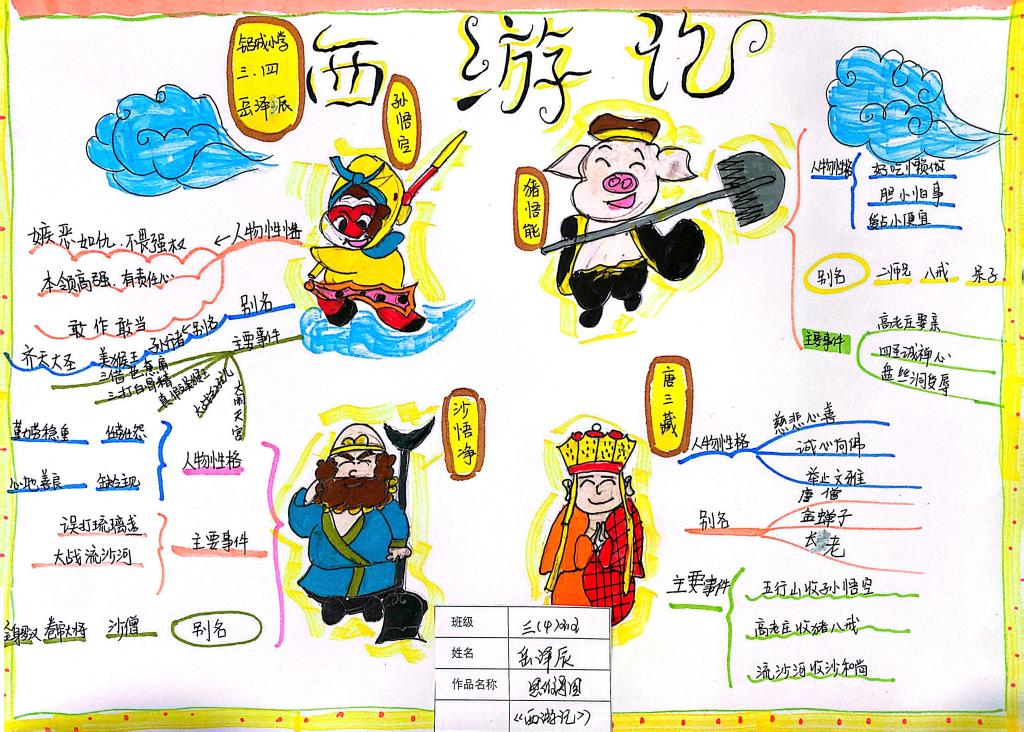 西游记
铝城小学
三.四
岳泽辰
孙悟空
人物性格
嫉恶如仇.不畏强权
本领高强.有责任心
敢作敢当
别名
齐天大圣 美猴王 孙行者 别名
主要事件
三借芭蕉扇
三打白骨精
真假美猴王
大战红孩儿
大闹天宫
猪悟能
人物性格
好吃懒做
胆小怕事
贪占小便宜
别名
二师兄 八戒 呆子
主要事件
高老庄娶亲
四圣试禅心
盘丝洞受辱
沙悟净
人物性格
勤劳稳重 任劳任怨
心地善良
主要事件
误打琉璃盏
大战流沙河
别名
沙僧 卷帘大将 金身罗汉
唐三藏
人物性格
慈悲心善
诚心向佛
举止文雅
别名
唐僧
金蝉子
长老
主要事件
五行山收孙悟空
高老庄收猪八戒
流沙河收沙和尚
班级 三(4)班
姓名 岳泽辰
作品名称 思维导图
《西游记》